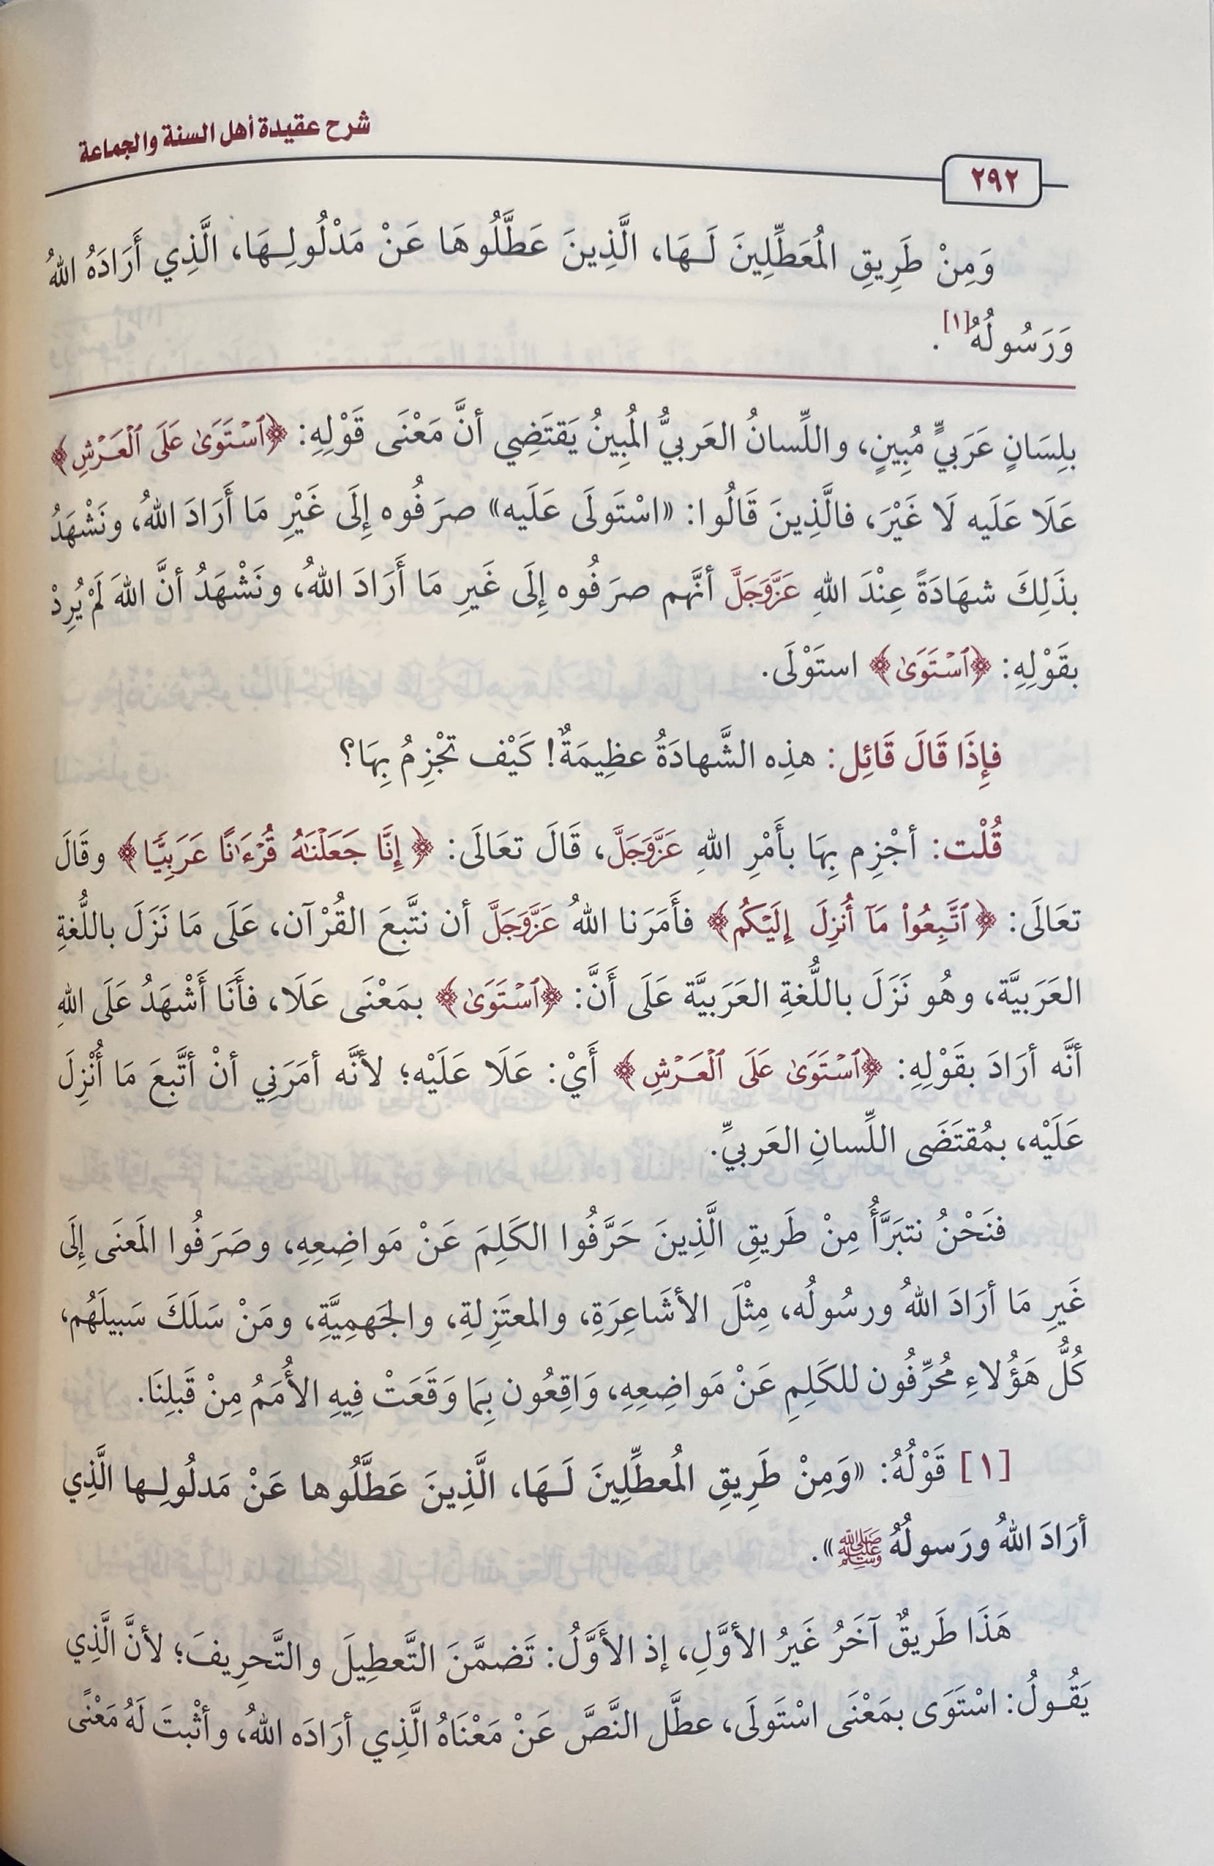 شرح عقيدة أهل السنة والجماعة
٢٩٢
وَمِنْ طَرِيقِ المُعَطِّلِينَ لَـهَا، الَّذِينَ عَطَّلُوهَا عَنْ مَدْلُولِـهَا، الَّذِي أَرَادَهُ اللهُ
وَرَسُولُهُ[١].
بلِسَانٍ عَرَبيٍّ مُبِينٍ، واللِّسانُ العَربيُّ المُبِينُ يَقتَضِي أنَّ مَعْنَى قَوْلِهِ: ﴿ٱسْتَوَىٰ عَلَى ٱلْعَرْشِ﴾
عَلَا عَلَيه لَا غَيْرَ، فالَّذِينَ قَالُوا: «اسْتَولَى عَلَيه» صرَفُوه إِلَى غَيْرِ مَا أَرَادَ اللهُ، ونَشْهَدُ
بذَلِكَ شهَادَةً عِنْدَ اللهِ عَزَّوَجَلَّ أنَّهم صرَفُوه إِلَى غَيرِ مَا أَرَادَ اللهُ، ونَشْهَدُ أنَّ اللهَ لَمْ يُرِدْ
بقَوْلِهِ: ﴿ٱسْتَوَىٰ﴾ استَوْلَى.
فإِذَا قَالَ قَائِل: هذِه الشَّهادَةُ عظِيمَةٌ! كَيْف تَجْزِمُ بِهَا؟
قُلْت: أجْزِم بِهَا بأَمْرِ اللهِ عَزَّوَجَلَّ، قَالَ تعَالَى: ﴿إِنَّا جَعَلْنَٰهُ قُرْءَٰنًا عَرَبِيًّا﴾ وقَالَ
تعَالَى: ﴿ٱتَّبِعُوا۟ مَآ أُنزِلَ إِلَيْكُم﴾ فأَمَرَنا اللهُ عَزَّوَجَلَّ أن نتَّبعَ القُرْآن، عَلَى مَا نَزَلَ باللُّغةِ
العَرَبيَّة، وهُو نَزَلَ باللُّغةِ العَرَبيَّة عَلَى أَنَّ: ﴿ٱسْتَوَىٰ﴾ بمَعْنَى عَلَا، فأَنَا أَشْهَدُ عَلَى اللهِ
أنَّه أرَادَ بقَوْلِهِ: ﴿ٱسْتَوَىٰ عَلَى ٱلْعَرْشِ﴾ أَيْ: عَلَا عَلَيْه؛ لأنَّه أمَرَنِي أنْ أتَّبعَ مَا أُنْزِلَ
عَلَيْه، بمُقتَضَى اللِّسانِ العَربيِّ.
فنَحْنُ نتبَرَّأُ مِنْ طَرِيقِ الَّذِينَ حَرَّفُوا الكَلِمَ عَنْ مَواضِعِهِ، وصَرَفُوا المَعنَى إِلَى
غَيرِ مَا أرَادَ اللهُ ورسُولُه، مِثْلَ الأشَاعِرَةِ، والمعتَزِلةِ، والجَهمِيَّةِ، ومَنْ سَلَكَ سَبيلَهُم،
كُلُّ هَؤُلاءِ مُحُرِّفُون للكَلِمِ عَنْ مَواضِعِهِ، وَاقِعُون بِمَا وَقَعَتْ فِيهِ الأُمَمُ مِنْ قَبلِنَا.
[١] قَوْلُهُ: «وَمِنْ طَرِيقِ المُعطِّلِينَ لَـهَا، الَّذِينَ عَطَّلُوها عَنْ مَدلُولِـها الَّذِي
أرَادَ اللهُ ورَسولُهُ ﷺ».
هَذَا طَريقٌ آخَرُ غَيرُ الأوَّلِ، إذ الأَوَّلُ: تَضمَّنَ التَّعطِيلَ والتَّحرِيفَ؛ لأنَّ الَّذِي
يَقُـولُ: اسْتَوَى بمَعْنَى اسْتَولَى، عطَّل النَّصَّ عَنْ مَعْنَاهُ الَّذِي أرَادَه اللهُ، وأثْبتَ لَهُ مَعْنًى